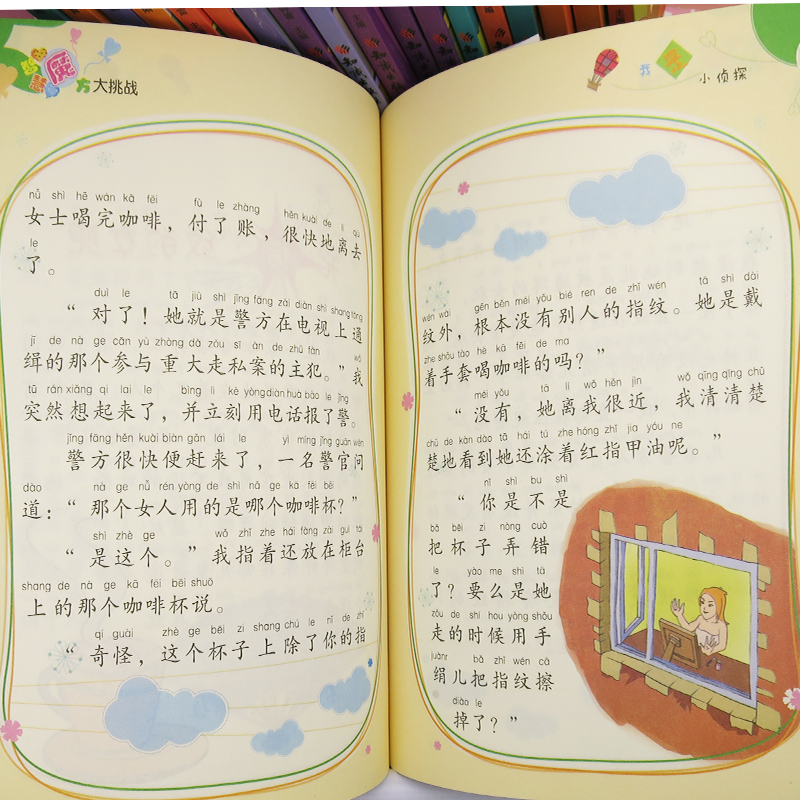 智慧魔方大挑战
nǚ shì hē wán kā fēi fù le zhàng hěn kuài de lí qù
女士喝完咖啡，付了账，很快地离去
le
了。
duì le tā jiù shì jǐng fāng zài diàn shì shang tōng
“对了！她就是警方在电视上通
jī de nà ge cān yù zhòng dà zǒu sī àn de zhǔ fàn wǒ
缉的那个参与重大走私案的主犯。”我
tū rán xiǎng qi lai le bìng lì kè yòng diàn huà bào le jǐng
突然想起来了，并立刻用电话报了警。
jǐng fāng hěn kuài biàn gǎn lái le yì míng jǐng guān wèn
警方很快便赶来了，一名警官问
dào nà ge nǚ rén yòng de shì nǎ ge kā fēi bēi
道：“那个女人用的是哪个咖啡杯？”
shì zhè ge wǒ zhǐ zhe hái fàng zài guì tái
“是这个。”我指着还放在柜台
shang de nà ge kā fēi bēi shuō
上的那个咖啡杯说。
qí guài zhè ge bēi zi shang chú le nǐ de zhǐ
“奇怪，这个杯子上除了你的指
小侦探
wén wài gēn běn méi yǒu bié ren de zhǐ wén tā shì dài
纹外，根本没有别人的指纹。她是戴
zhe shǒu tào hē kā fēi de ma
着手套喝咖啡的吗？”
méi yǒu tā lí wǒ hěn jìn wǒ qīng qīng chǔ
“没有，她离我很近，我清清楚
chǔ de kàn dào tā hái tú zhe hóng zhǐ jia yóu ne
楚地看到她还涂着红指甲油呢。”
nǐ shì bu shì
“你是不是
bǎ bēi zi nòng cuò
把杯子弄错
le yào me shì tā
了？要么是她
zǒu de shí hou yòng shǒu
走的时候用手
juànr bǎ zhǐ wén cā
绢儿把指纹擦
diào le
掉了？”